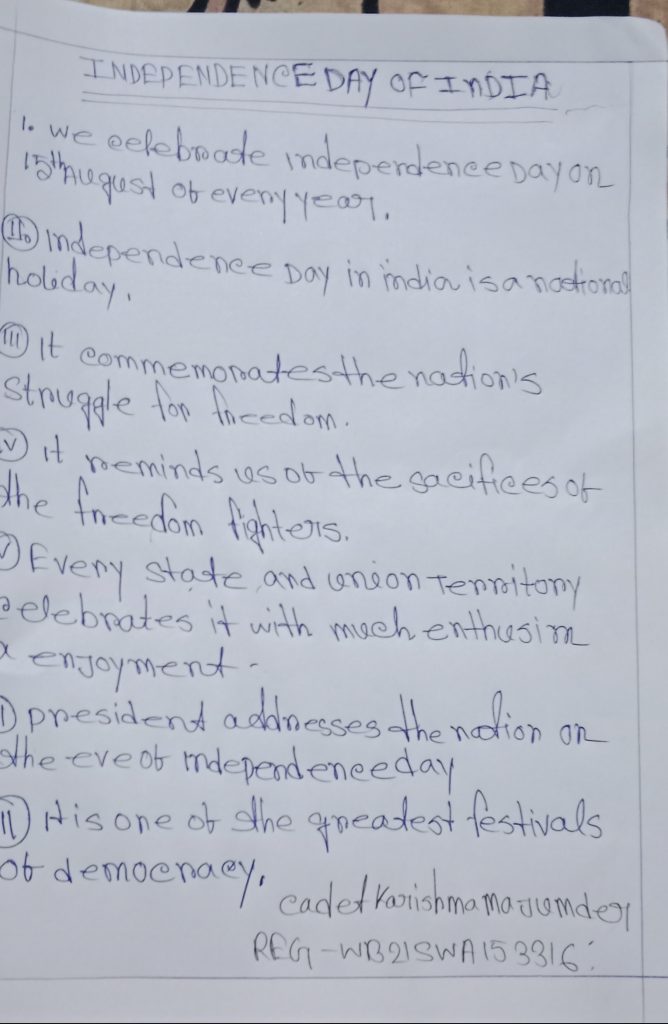 INDEPENDENCE DAY OF INDIA
1. We celebrate independence Day on
15th August of every year.
II. independence Day in india is a national
holiday.
III It commemorates the nation's
struggle for freedom.
V it reminds us of the sacifices of
the freedom fighters.
V Every state and union Territory
celebrates it with much enthusim
& enjoyment -
I president addresses the nation on
the eve of independence day
II It is one of the greatest festivals
of democracy,
cadet Karishma Majumder
REG-WB21SWA153316: